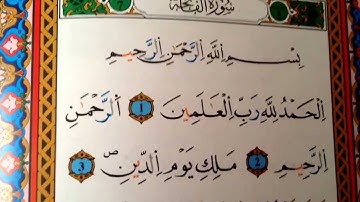 سُورَةُ الْفَاتِحَةِ 7
بِسْمِ اِللَّهِ اِلرَّحْمَٰنِ اِلرَّحِيمِ
اِلْحَمْدُ لِلهِ رَبِّ اِلْعَٰلَمِينَ 1 اَلرَّحْمَٰنِ
اِلرَّحِيمِ 2 مَلِكِ يَوْمِ اِلدِّينِ ص 3